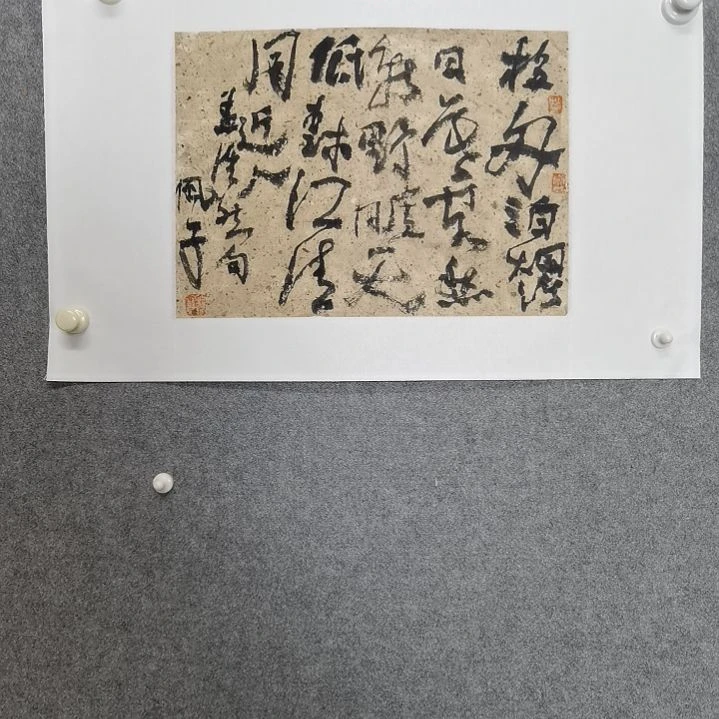 移舟泊煙渚
日暮客愁
新野曠天
低樹江清
月近人
孟浩然句